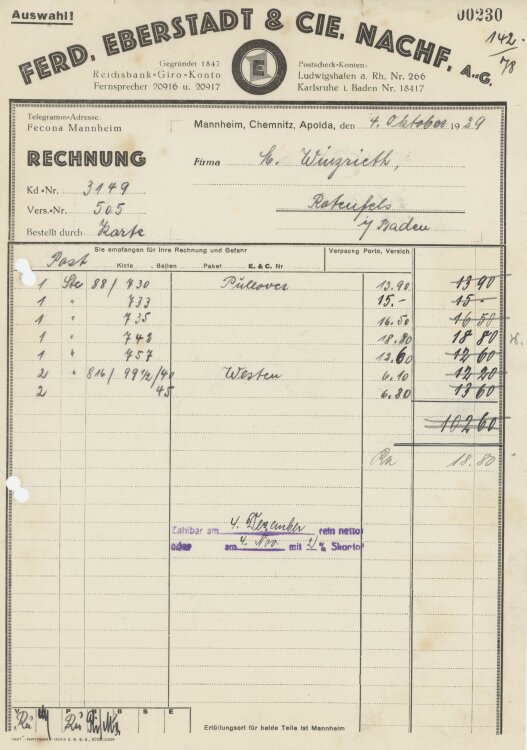 Auswahl!
00230
142/78
FERD. EBERSTADT & CIE. NACHF. A.-G.
Gegründet 1847
Reichsbank-Giro-Konto
Fernsprecher 20916 u. 20917
E
Postscheck-Konten:
Ludwigshafen a. Rh. Nr. 266
Karlsruhe i. Baden Nr. 18417
Telegramm-Adresse:
Fecona Mannheim
Mannheim, Chemnitz, Apolda, den 4. Oktober 1929
RECHNUNG
Firma M. Winzrieth,
Kd.-Nr. 3149
Rotenfels
Vers.-Nr. 505
i/Baden
Bestellt durch Karte
Sie empfangen für Ihre Rechnung und Gefahr
Verpackg Porto, Versich.
Post
Kiste Ballen Paket E. & C. Nr
1 Stck 88/ 730 Pullover 13.90 13 90
1 " 733 15.- 15 -
1 " 735 16.50 16 50
1 " 742 18.80 18 80
1 " 757 12.60 12 60
2 " 816/ 99 1/2/40 Westen 6.10 12 20
2 45 6.80 13 60
102 60
18.80
Zahlbar am 4. Dezember rein netto
oder am 4. Nov. mit 2% Skonto
V P N B S E
Erfüllungsort für beide Teile ist Mannheim